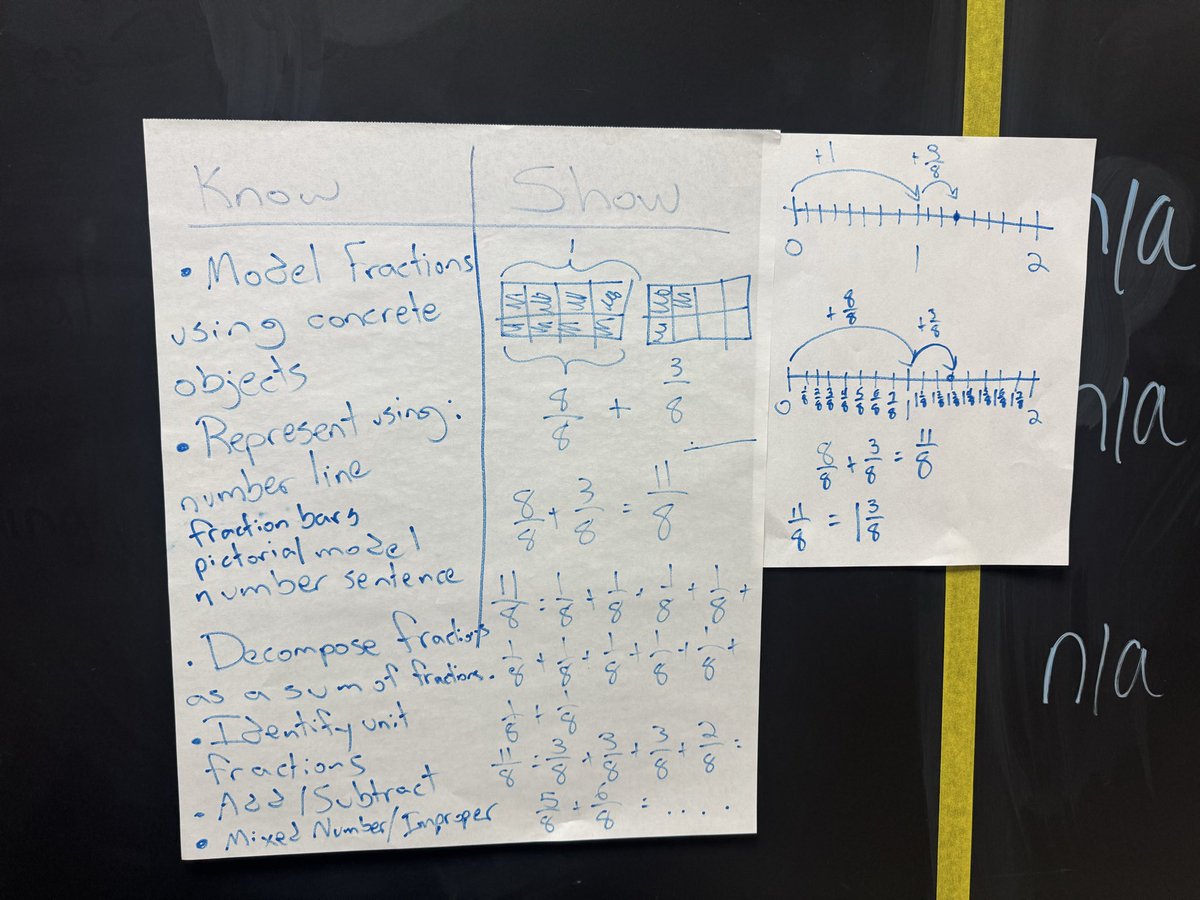 Know
• Model Fractions
using concrete
objects
• Represent using:
number line
fraction bars
pictorial model
number sentence
• Decompose fractions
as a sum of fractions.
• Identify unit
fractions
• Add/Subtract
• Mixed Number/Improper
Show
1
8/8 + 3/8
8/8 + 3/8 = 11/8
11/8 = 1/8 + 1/8 + 1/8 + 1/8 +
1/8 + 1/8 + 1/8 + 1/8 + 1/8 +
1/8 + 1/8
11/8 = 3/8 + 3/8 + 3/8 + 2/8 =
5/8 + 6/8 = ....
+1 +3/8
0 1 2
+8/8 +3/8
0 1/8 2/8 3/8 4/8 5/8 6/8 7/8 1 1 1/8 1 2/8 1 3/8 1 4/8 1 5/8 1 6/8 1 7/8 2
8/8 + 3/8 = 11/8
11/8 = 1 3/8
n/a
n/a
n/a